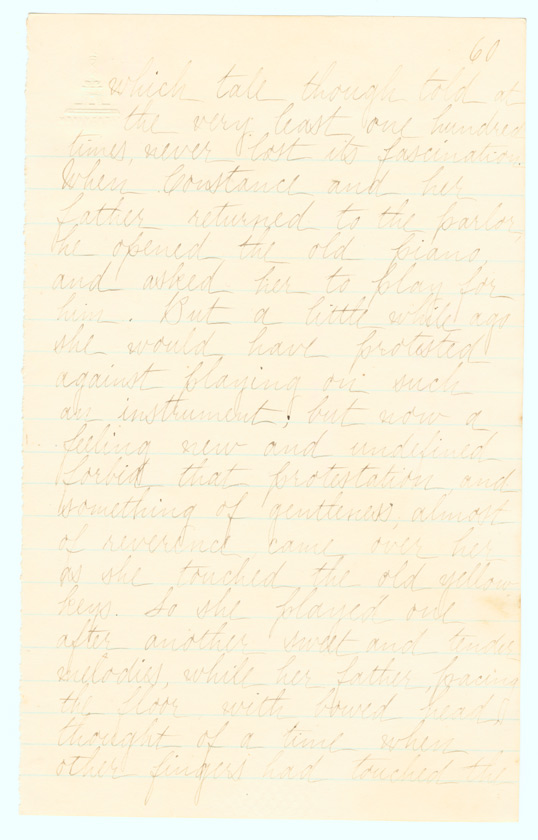 60
which tale though told at
the very least one hundred
times, never lost its fascination.
When Constance and her
father returned to the parlor,
he opened the old piano,
and asked her to play for
him. But a little while ago
she would have protested
against playing on such
an instrument; but now a
feeling new and undefined
forbid that protestation and
something of gentleness, almost
of reverence came over her
as she touched the old yellow
keys. So she played one
after another sweet and tender
melodies, while her father pacing
the floor with bowed head
thought of a time when
other fingers had touched the